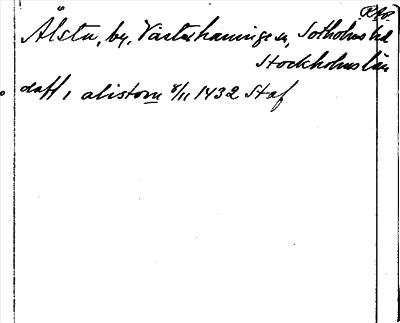 RAp.
Ålsta, by, Västerhaninge sn, Sotholms hd
Stockholms län
daff, alistom 8/11 1432 Staf